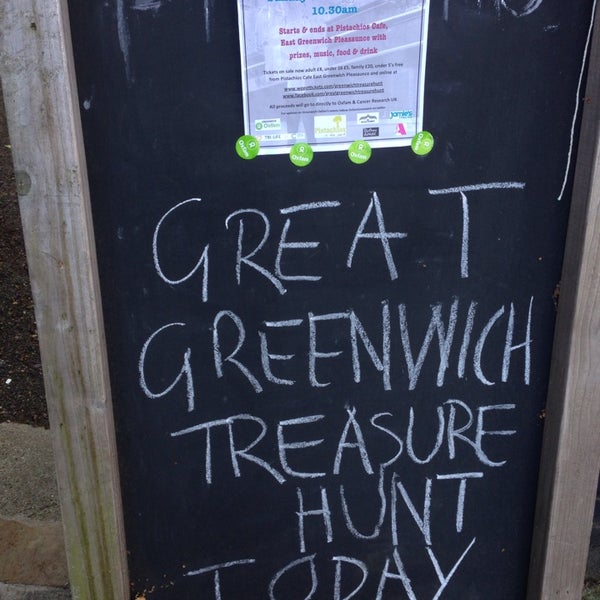 10.30am
Starts & ends at Pistachios Cafe,
East Greenwich Pleasaunce with
prizes, music, food & drink
Tickets on sale now adult £8, under 16 £5, family £20, under 5's free
from Pistachios Cafe East Greenwich Pleasaunce and online at
www.wegottickets.com/greenwichtreasurehunt
www.facebook.com/greatgreenwichtreasurehunt
All proceeds will go directly to Oxfam & Cancer Research UK
Oxfam TRI LIFE Pistachios Jamie's
Oxfam Oxfam Oxfam Oxfam
GREAT
GREENWICH
TREASURE
HUNT
TODAY